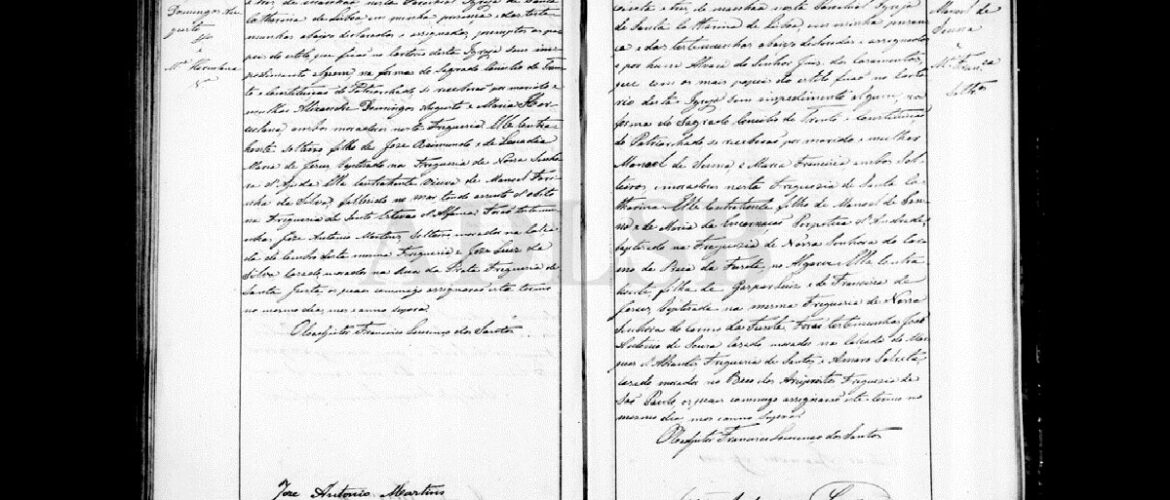 Domingos Au
gusto
e
Mª Herculana
e tres de manhãa nesta Parochial Igreja de Santa
Catherina de Lisboa em minha presença e das teste
munhas abaixo declaradas e assignados, promptos os pa
peis do estilo que ficão no Cartorio desta Igreja sem im
pedimento algum na forma do Sagrado Concilio de Tren
to e Constituicoens do Patriarchado se receberão por marido e
mulher Alexandre Domingos Augusto e Maria Her
culana, ambos moradores nesta Freguezia Elle Contra
hente solteiro filho de Jose Raimundo e de Leocadia
Maria de Jesus, baptizado na Freguezia de Nossa Senho
ra d'Ajuda Ella Contrahente Viuva de Manoel Fari
nha da Silva, fallecido no
na Freguezia de Santo Estevão d'Alfama Forão testemu
nhas Jose Antonio Martins, solteiro morador na Calça
da do Combro desta mesma Freguezia e Jose Luiz da
Silva cazado, morador na Rua da Prata Freguezia de
Santa Justa, os quaes commigo assignarão este termo
no mesmo dia, mes e anno supra
O Coadjutor Francisco Lourenço dos Santos
Jose Antonio Martins
Manoel de
Senna
e
Mª Fran.ca
Soltros
e tres de manhãa nesta Parochial Igreja
de Santa Catharina de Lisboa, em minha presen
ça e das testemunhas abaixo declaradas e assignadas
e por hum Alvará do Senhor Juiz dos Cazamentos,
que com os mais papeis do estilo ficão no Carto
rio desta Igreja sem impedimento algum, na
forma do Sagrado Concilio de Trento e Constituicoens
do Patriarchado se receberão por marido e mulher
Manoel de Senna e Maria Francisca ambos Sol
teiros, e moradores nesta Freguezia de Santa Ca
tharina Elle Contrahente filho de Manoel de Sen
na e de Maria da Encarnação Perpetua d'Andrade,
baptizado na Freguezia de Nossa Senhora do Car
mo de Beca da Fuzeta, no Algarve Ella Contra
hente, filha de Gaspar Luiz e de Francisca de
Jesus, baptizada na mesma Freguezia de Nossa
Senhora do Carmo da Fuzeta, Forão testemunhas José
Antonio de Soura cazado morador na Calçada do Mar
quez d'Abrantes, Freguezia de Santos, e Amaro
cazado morador no Beco dos Freguezia de
São Paulo, os quaes commigo assignarão este termo no
mesmo dia mes e anno supra
O Coadjutor Francisco Lourenço dos Santos
ADLSB